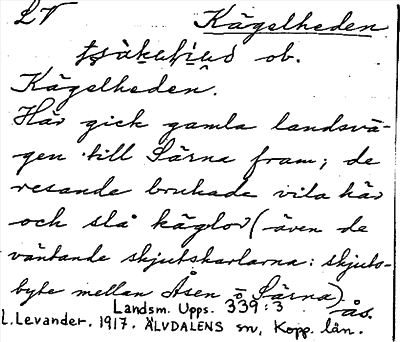 LV Kägelheden
ob.
Kägelheden.
Här gick gamla landsvä-
gen till Särna fram; de
resande brukade vila här
och slå käglor (även de
väntande skjutskarlarna: skjuts-
byte mellan Åsen o Särna)
Landsm. Upps. 339:3 ås.
L. Levander. 1917. ÄLVDALENS sn, Kopp. län.